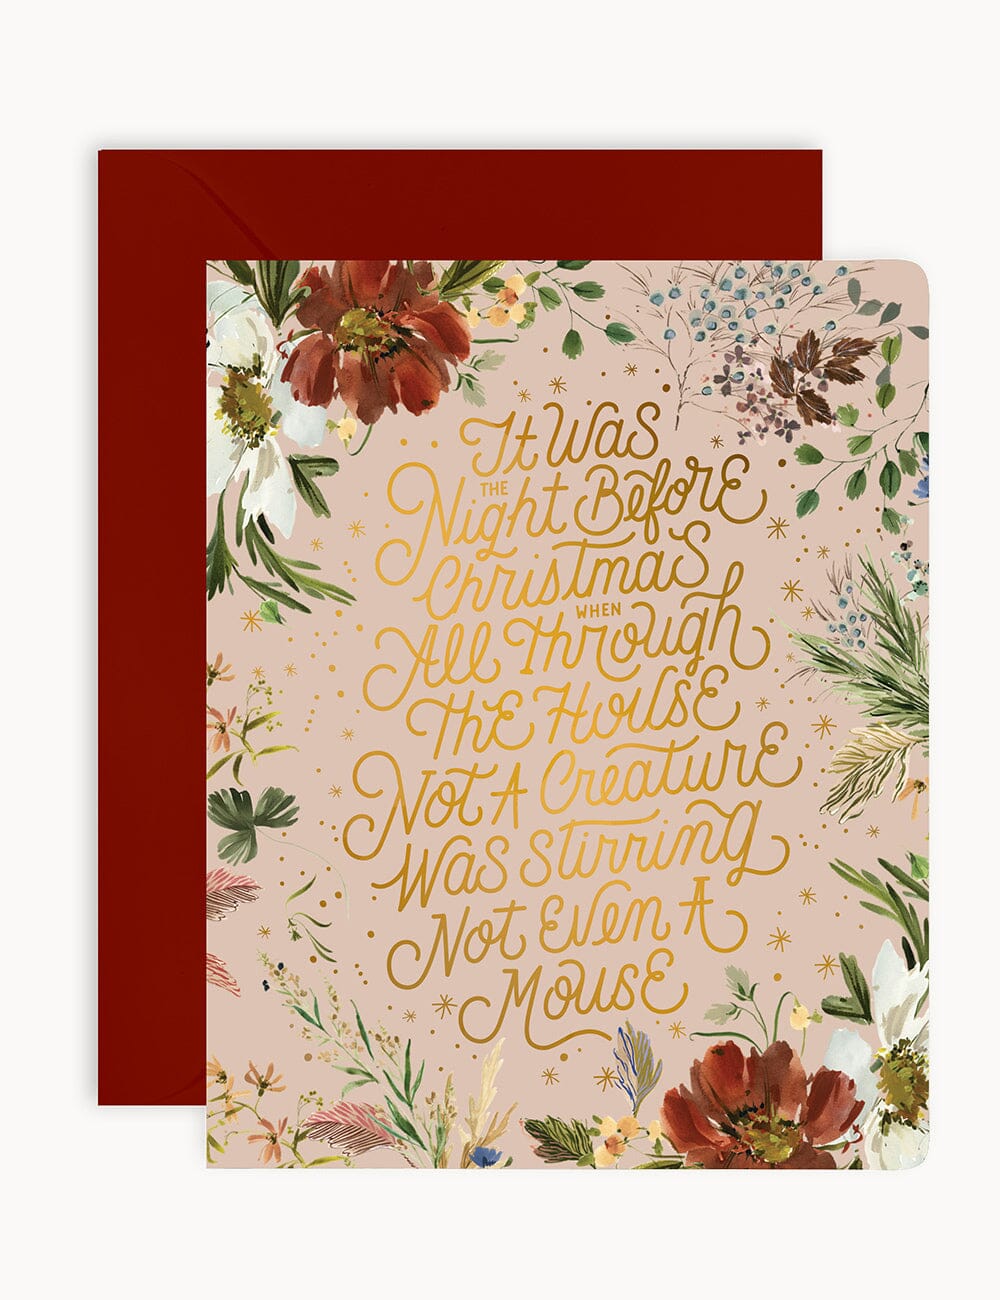 It Was
THE Night Before
Christmas WHEN
All Through
The House
Not A Creature
Was Stirring
Not Even A
Mouse